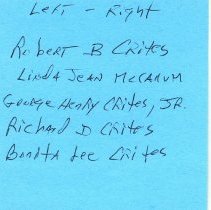 Left - Right
Robert B Crites
Linda Jean McCarum
George Henry Crites, JR.
Richard D Crites
Bonita Lee Crites